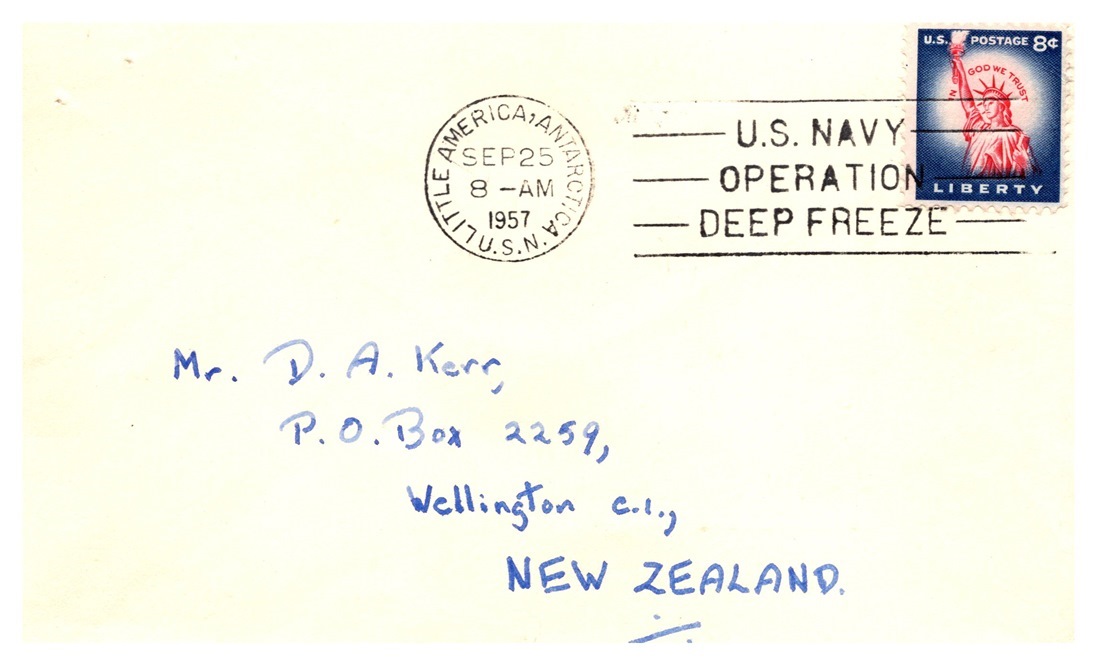 U.S. POSTAGE 8¢
IN GOD WE TRUST
LIBERTY
LITTLE AMERICA, ANTARCTICA U.S.N.
SEP 25
8 - AM
1957
U.S. NAVY
OPERATION
DEEP FREEZE
Mr. D. A. Kerr,
P.O. Box 2259,
Wellington C.1.,
NEW ZEALAND.